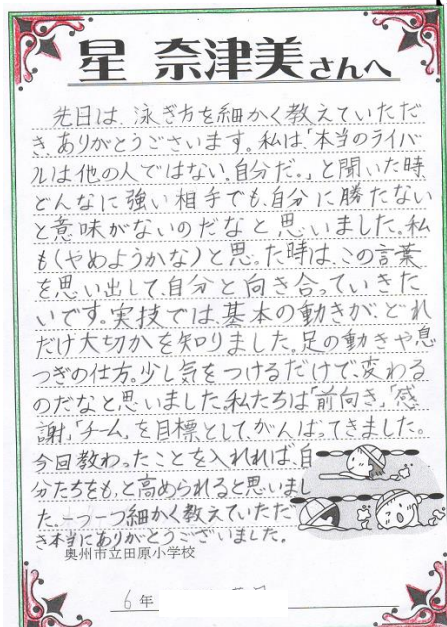 星 奈津美さんへ
先日は、泳ぎ方を細かく教えていただ
き、ありがとうございます。私は、「本当のライバ
ルは他の人ではない、自分だ。」と聞いた時、
どんなに強い相手でも、自分に勝たない
と意味がないのだなと思いました。私
も(やめようかな)と思った時は、この言葉
を思い出して、自分と向き合っていきた
いです。実技では、基本の動きが、どれ
だけ大切かを知りました。足の動きや息
つぎの仕方。少し気をつけるだけで変わる
のだなと思いました。私たちは「前向き」「感
謝」「チーム」を目標として、がんばってきました。
今回教わったことを入れれば、自
分たちをもっと高められると思いまし
た。一つ一つ細かく教えていただ
き本当にありがとうございました。
奥州市立田原小学校
6年